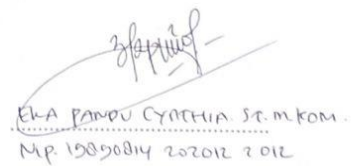 EKA PANDU CYNTHIA. ST. M.KOM.
NIP. 19890814 202012 2012